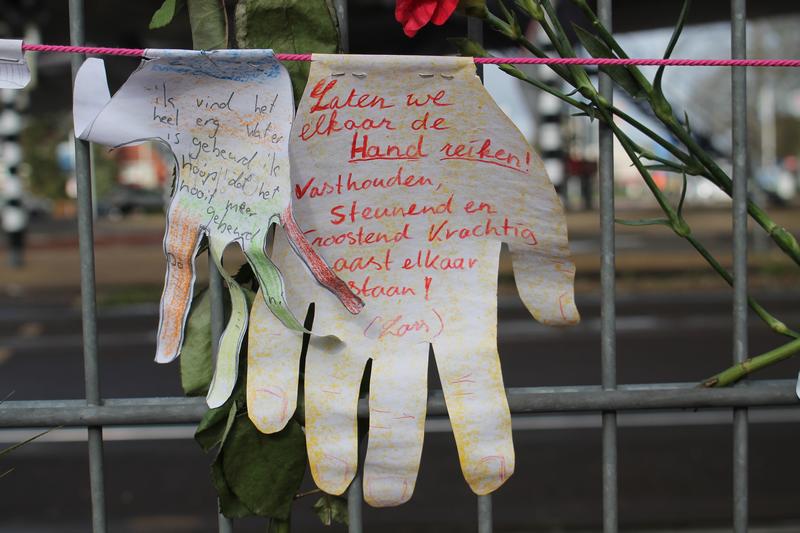 ik vind het
heel erg water
is gebeurd ik
hoop dat het
nooit meer
gebeurd
Laten we
elkaar de
Hand reiken!
Vasthouden,
steunend en
Troostend Krachtig
aast elkaar
staan!
(Lars)